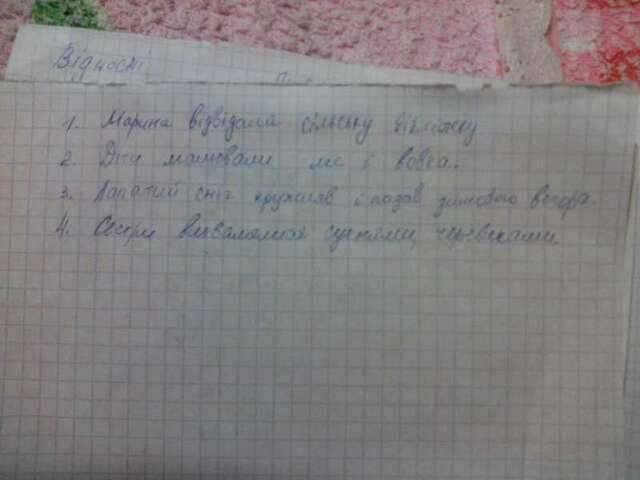 Відносні
1. Марина відвідала сільську бібліотеку
2. Діти малювали ліс і вовка.
3. Лапатий сніг кружляв і падав зимового вечора.
4. Сестри вихвалялися сукнями, черевиками